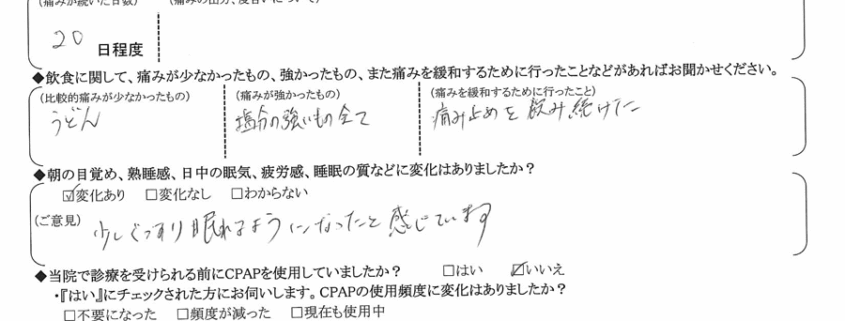 (痛みが続いた日数) (痛みの出方、度合いについて)
20 日程度
◆飲食に関して、痛みが少なかったもの、強かったもの、また痛みを緩和するために行ったことなどがあればお聞かせください。
(比較的痛みが少なかったもの) (痛みが強かったもの) (痛みを緩和するために行ったこと)
うどん 塩分の強いもの全て 痛み止めを飲み続けた
◆朝の目覚め、熟睡感、日中の眠気、疲労感、睡眠の質などに変化はありましたか？
☑変化あり □変化なし □わからない
(ご意見) 少しぐっすり眠れるようになったと感じています
◆当院で診療を受けられる前にCPAPを使用していましたか？ □はい ☑いいえ
・『はい』にチェックされた方にお伺いします。CPAPの使用頻度に変化はありましたか？
□不要になった □頻度が減った □現在も使用中